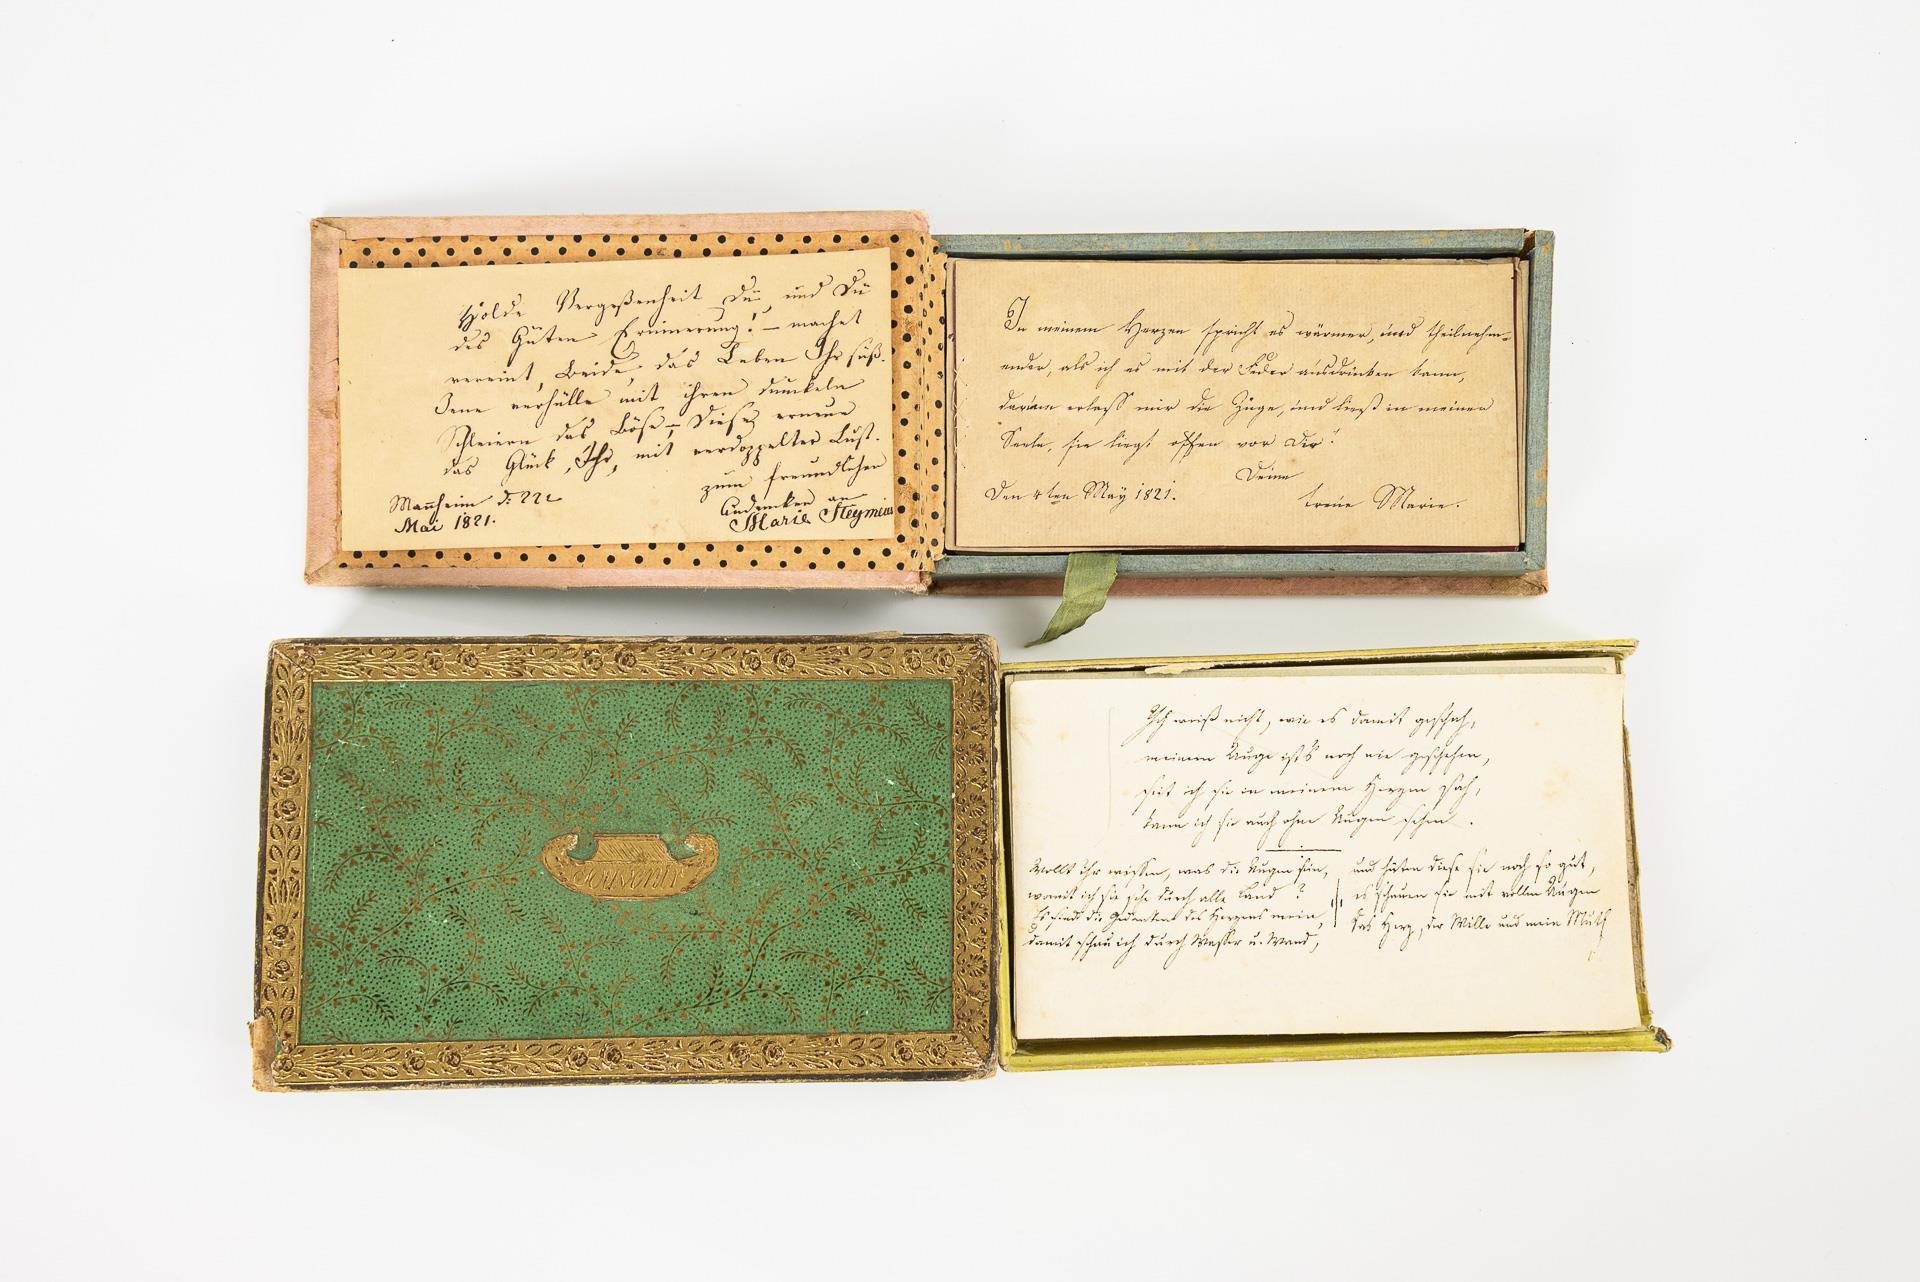 Holde Vergeßenheit Du, und Du
des Guten Erinnerung! – machet
vereint, Beide das Leben Ihr süß.
Jene verhülle mit ihren dunkeln
Schleiern das Böse, – Diese erneue
das Glück, Ihr, mit verdoppelter Lust.
zum freundlichen
Andenken an
Marie Steymeier
Mannheim d: 22t
Mai 1821.
In meinem Herzen spricht es wärmer, und theilnehm-
ender, als ich es mit der Feder ausdrücken kann,
darum erlaß mir die Züge, und ließ in meiner
Seele, sie liegt offen vor Dir!
Deine
treue Marie.
Den 4ten May 1821.
SOUVENIR
Ich weiß nicht, wie es damit geschah,
meinem Auge ist's noch nie geschehen,
seit ich sie in meinem Herzen sah,
kann ich sie auch ohne Augen sehen.
Wollt Ihr wissen, was die Augen sein,
womit ich sie sehe durch alle Land?
Es sind die Gedanken des Herzens mein,
damit schau ich durch Wasser u. Wand,
und hüten diese sie noch so gut,
es schauen sie mit vollen Augen
das Herz, der Wille und mein Muth